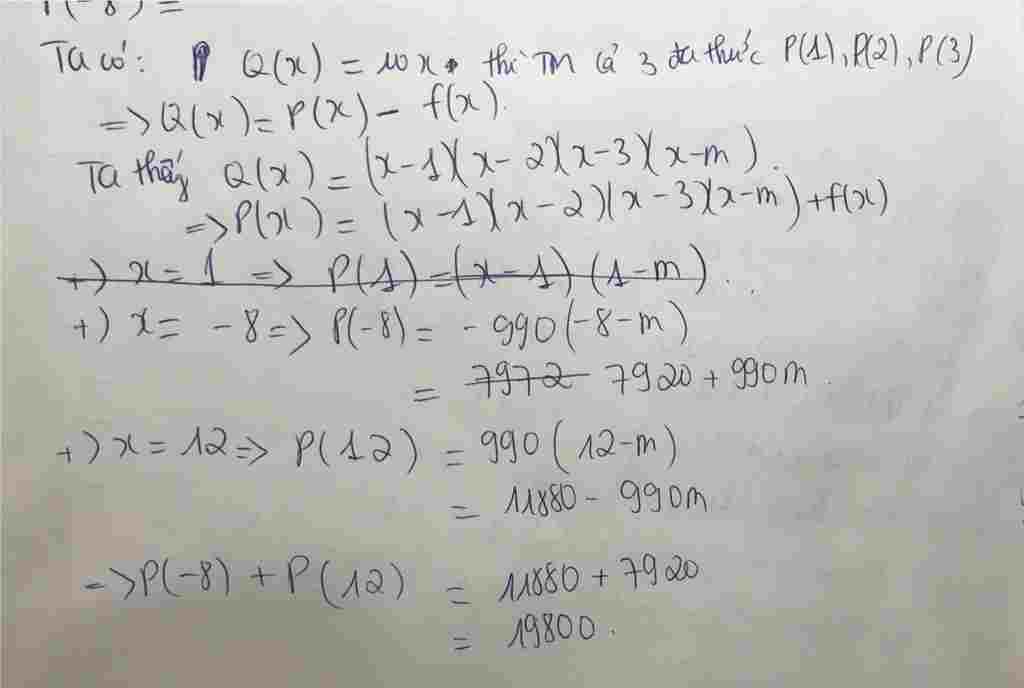 P(-8) =
Ta có: Q(x) = 10x thì TM cả 3 đa thức P(1), P(2), P(3)
=> Q(x) = P(x) - f(x).
Ta thấy Q(x) = (x-1)(x-2)(x-3)(x-m).
=> P(x) = (x-1)(x-2)(x-3)(x-m)+f(x)
+) x = 1 => P(1) = (x-1)(1-m)...
+) x = -8 => P(-8) = -990(-8-m)
= 7972 7920 + 990m.
+) x = 12 => P(12) = 990(12-m)
= 11880 - 990m
=> P(-8) + P(12) = 11880 + 7920
= 19800.